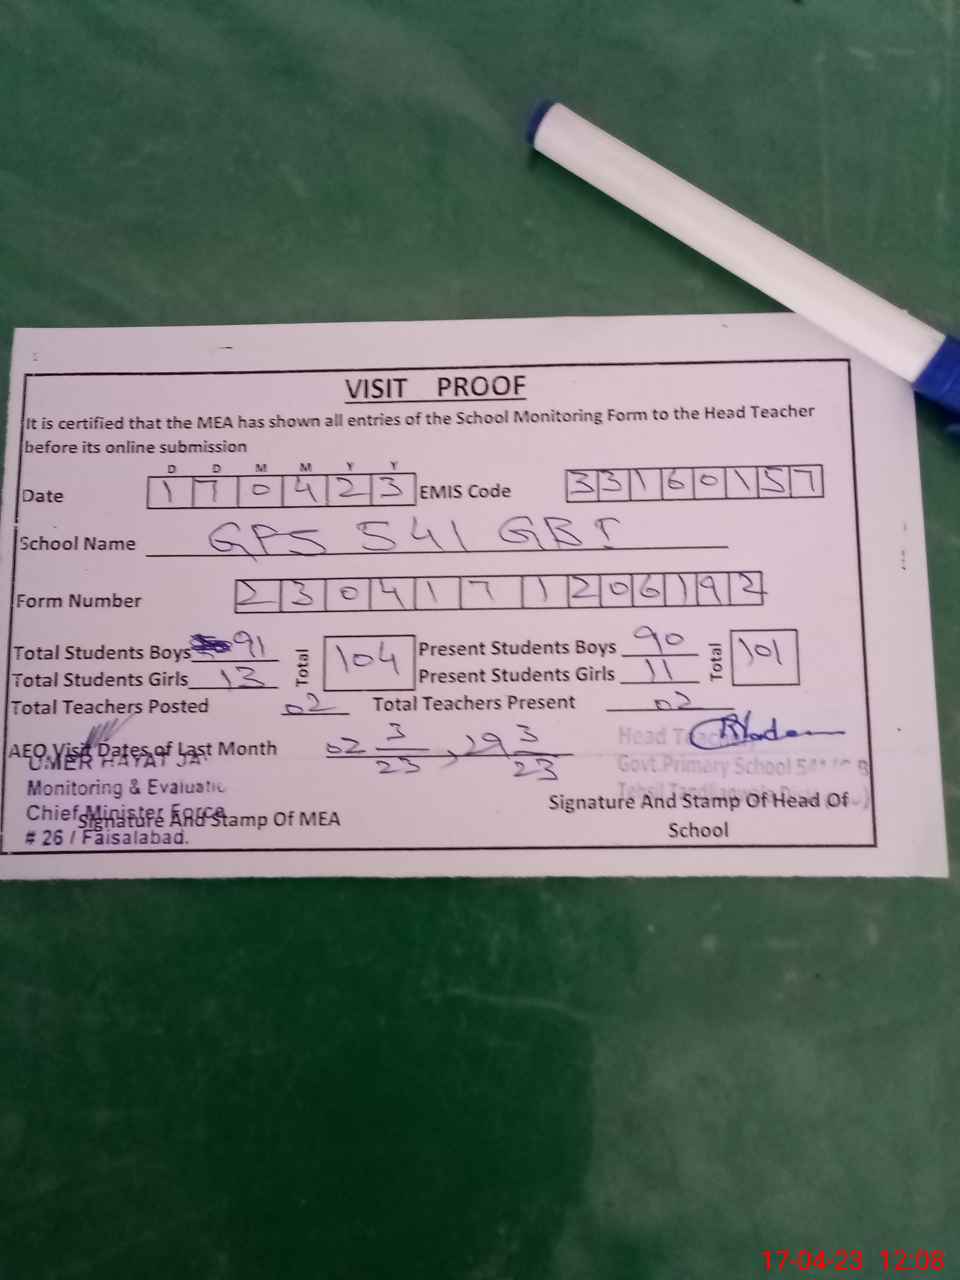 VISIT PROOF
It is certified that the MEA has shown all entries of the School Monitoring Form to the Head Teacher
before its online submission
D D M M Y Y
Date 1 7 0 4 2 3 EMIS Code 3 3 1 6 0 1 5 7
School Name GPS 541 GB
Form Number 2 3 0 4 1 7 1 2 0 6 1 9 2
Total Students Boys 91 Total 104 Present Students Boys 90 Total 101
Total Students Girls 13 Present Students Girls 11
Total Teachers Posted 02 Total Teachers Present 02
AEO Visit Dates of Last Month 02 3/23 , 29 3/23
Head
UMER HAYAT
Govt. Primary School
Monitoring &
Tehsil
Chief Minister Force
Signature And Stamp Of MEA
# 26 / Faisalabad.
Signature And Stamp Of Head Of
School
17-04-23 12:08